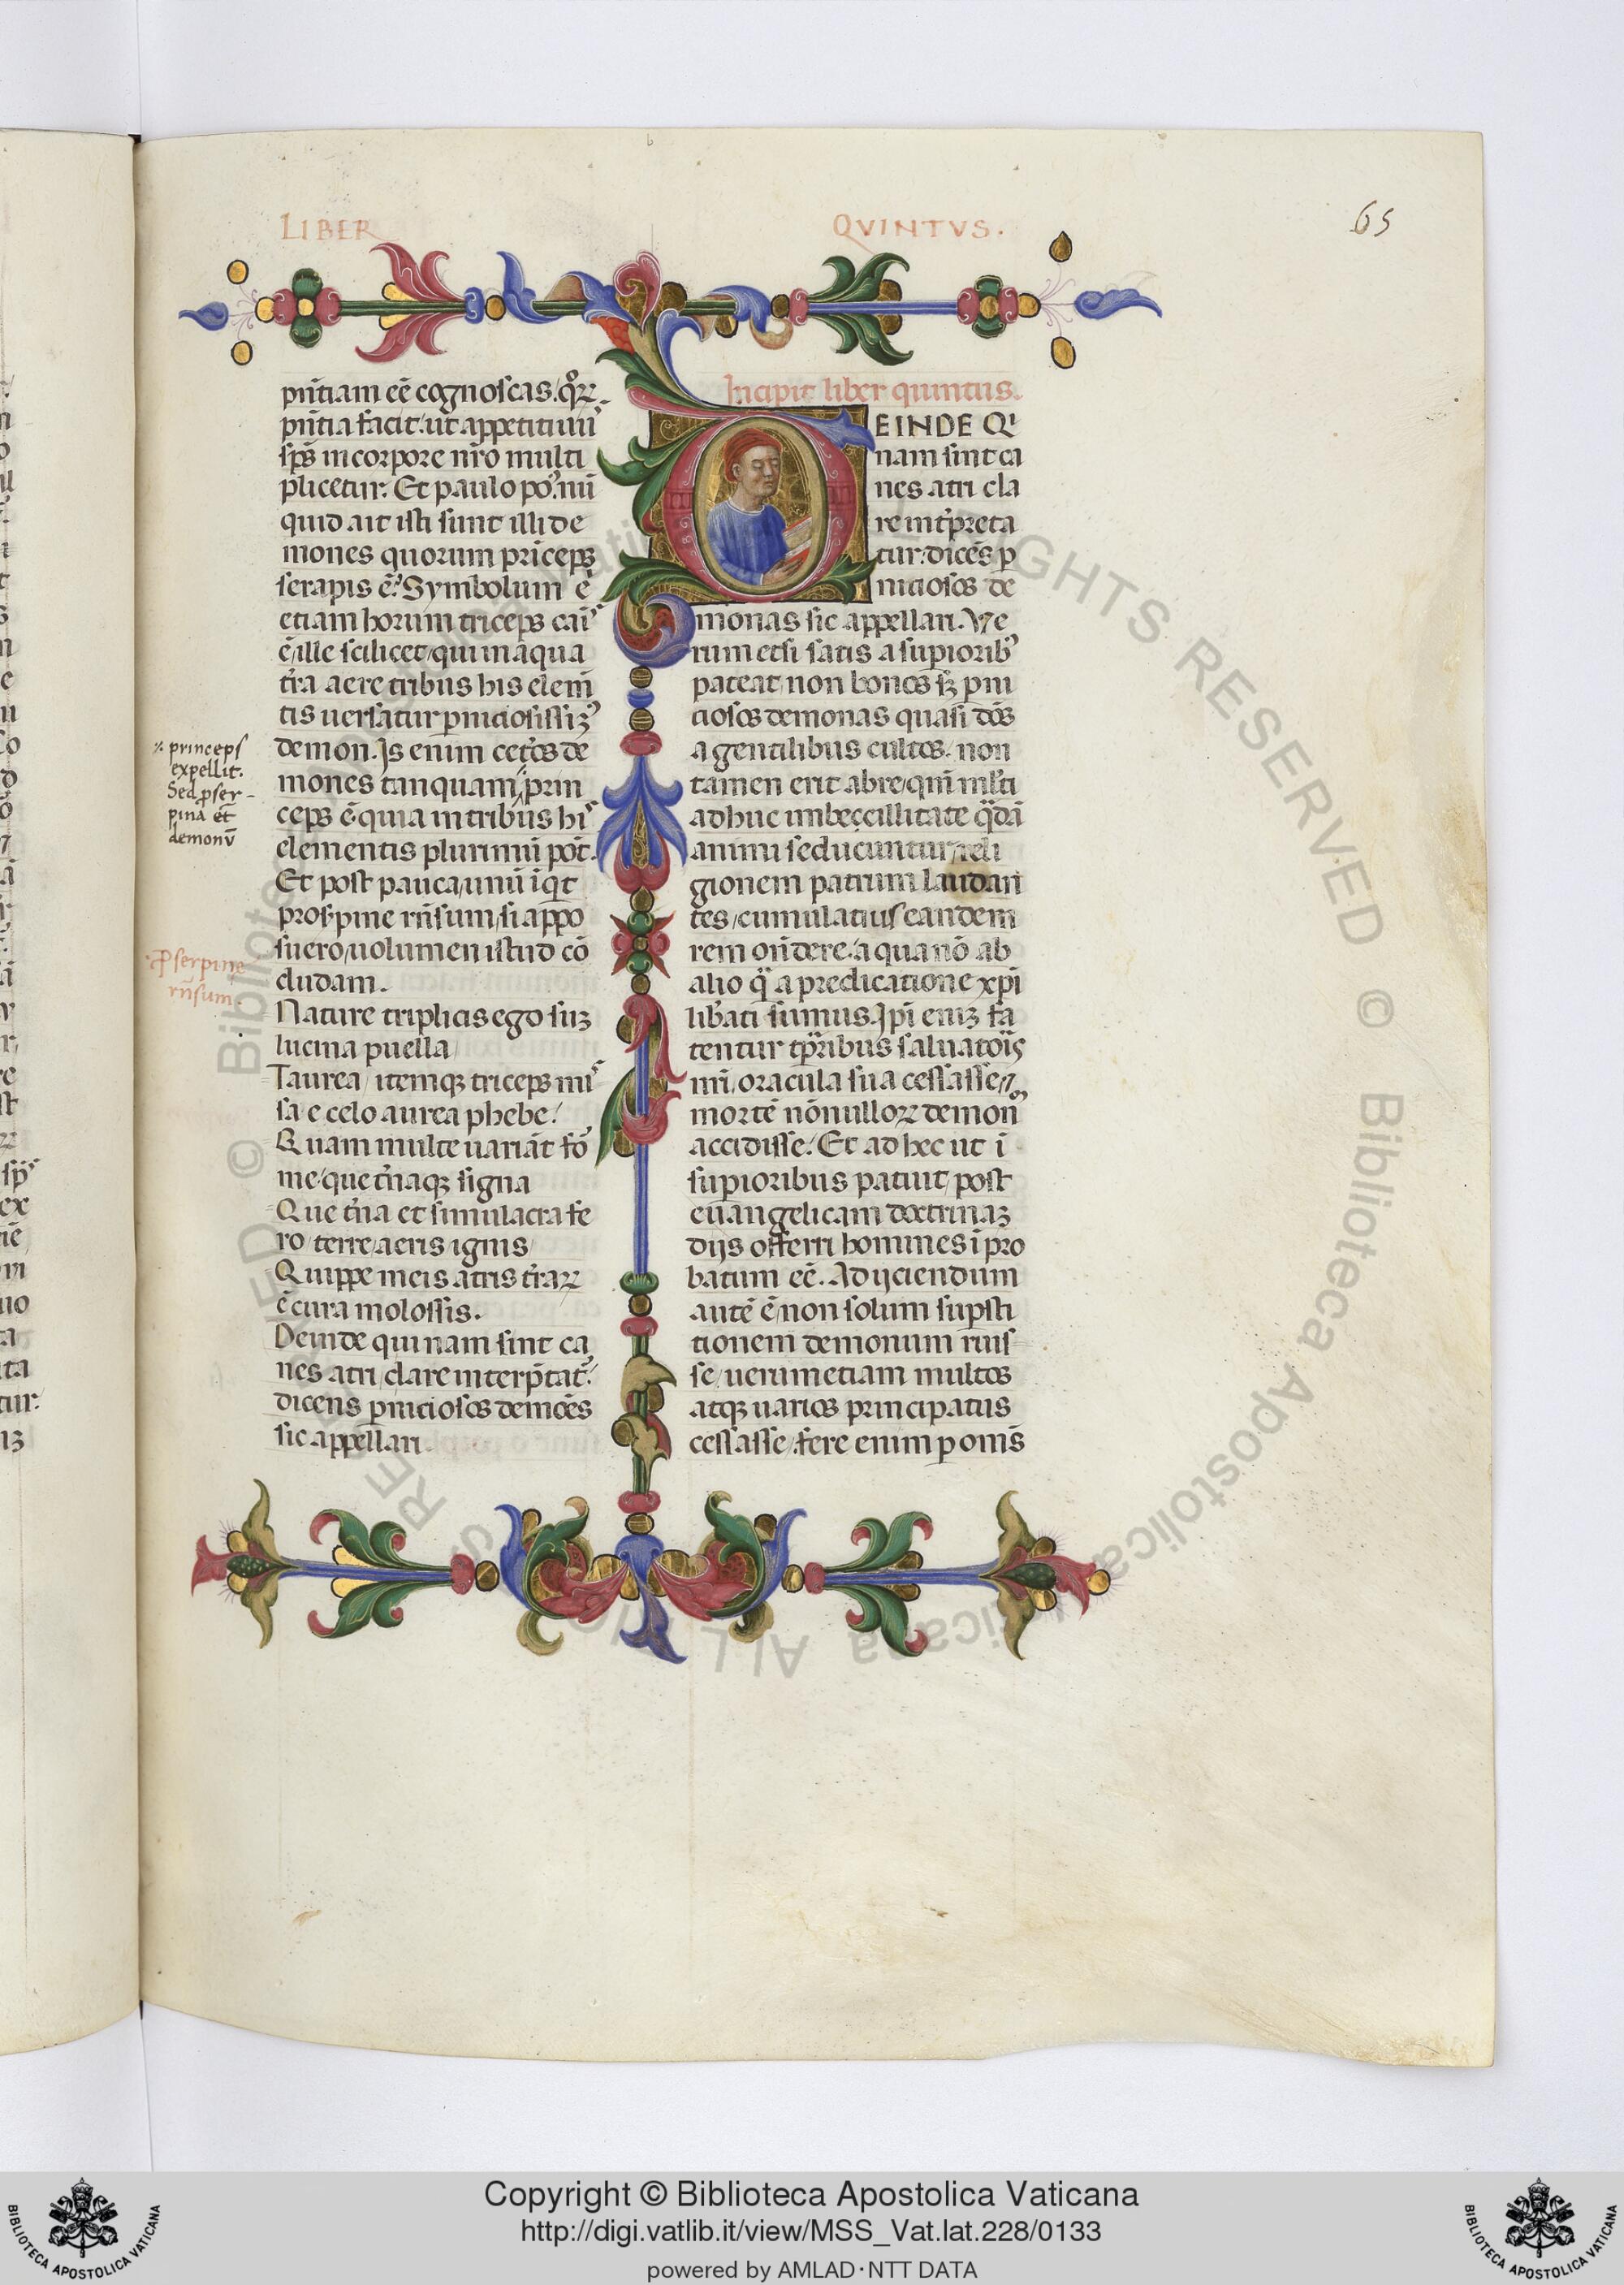 LIBER QVINTVS.
65
pñtiam eē cognoscas. qͦꝝ
pñtia facit ut appetitium
sp̄s in corpore nr̄o multi
plicetur. Et paulo po᷒ nū
quid ait isti sunt illi de
mones quorum princeps
serapis ē? Symbolum ē
etiam horum triceps cai᷒
ē ille scilicet qui in aqua
t̄ra aere tribus his elem̄
tis uersatur ꝑniciosissiꝫ᷒
demon. Is enim cet̄os de
mones tanquam prin
ceps ē quia in tribus hi᷒
elementis plurimū pōt.
Et post pauca unū iqͥt
proserpine rūsum si appo
suero uolumen istud cō
cludam.
Nature triplicis ego suꝫ
lucina puella
Taurea itemqꝫ triceps mi᷒
sa e celo aurea phebe.
Quam multe uariāt fo᷒
me que t̄naqꝫ signa
Que t̄na et simulacra fe
ro terre aeris ignis
Quippe meis atris t̄raꝝ
ē cura molossis.
Deinde qui nam sint ca
nes atri clare interp̄tat᷒.
dicens ꝑniciosos demōes
sic appellari
princeps
expellit.
Sed ꝓser-
pina et̄
demonū
Pserpine
rūsum.
Incipit liber quintus.
DEINDE QͥI
nam sint ca
nes atri cla
re int̄preta
tur. dicēs ꝑ
niciosos de
monas sic appellari. Ve
rum etsi satis a supiorib᷒
pateat non bonos sꝫ ꝑni
ciosos demonas quasi deos
a gentilibus cultos. non
tamen erit ab re qm̄ ml̄ti
adhuc imbeccillitate qͣdā
animi seducuntur reli
gionem patrum laudan
tes cumulatius eandem
rem oñdere a qua nō ab
alio qͣ a predicatione xp̄i
lib̄ati sumus. Ip̄i eniꝫ fa
tentur tꝑibus saluatoris
nr̄i oracula sua cessasse ⁊
mortē nōnulloꝝ demon
accidisse. Et ad hec ut ī
supioribus patuit post
euangelicam doctrinaꝫ
dijs offerri homines īpro
batum eē. Adijciendum
autē ē non solum supsti
tionem demonum ruis
se uerum etiam multos
atqꝫ uarios principatus
cessasse. fere enim ꝑ oms̄
© Biblioteca Apostolica Vaticana ALL RIGHTS RESERVED
Copyright © Biblioteca Apostolica Vaticana
http://digi.vatlib.it/view/MSS_Vat.lat.228/0133
powered by AMLAD·NTT DATA
BIBLIOTECA APOSTOLICA VATICANA
BIBLIOTECA APOSTOLICA VATICANA